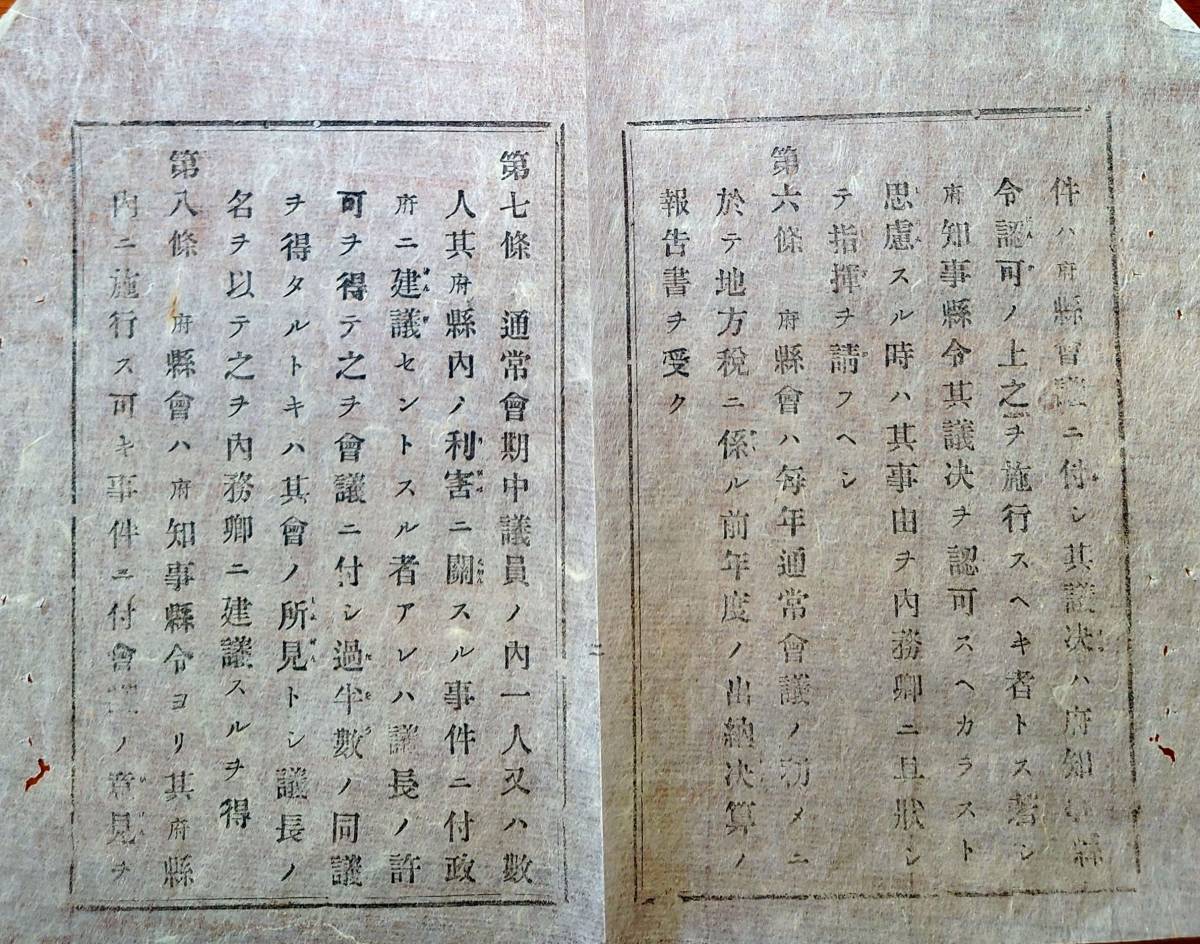 件ハ府縣會議ニ付シ其議決ハ府知事縣
令認可ノ上之ヲ施行スヘキ者トス若シ
府知事縣令其議決ヲ認可スヘカラスト
思慮スル時ハ其事由ヲ内務卿ニ具狀シ
テ指揮ヲ請フヘシ
第六條 府縣會ハ每年通常會議ノ初メニ
於テ地方稅ニ係ル前年度ノ出納決算ノ
報告書ヲ受ク
二
第七條 通常會期中議員ノ內一人又ハ數
人其府縣內ノ利害ニ關スル事件ニ付政
府ニ建議セントスル者アレハ議長ノ許
可ヲ得テ之ヲ會議ニ付シ過半數ノ同議
ヲ得タルトキハ其會ノ所見トシ議長ノ
名ヲ以テ之ヲ內務卿ニ建議スルヲ得
第八條 府縣會ハ府知事縣令ヨリ其府縣
內ニ施行ス可キ事件ニ付會議ノ意見ヲ